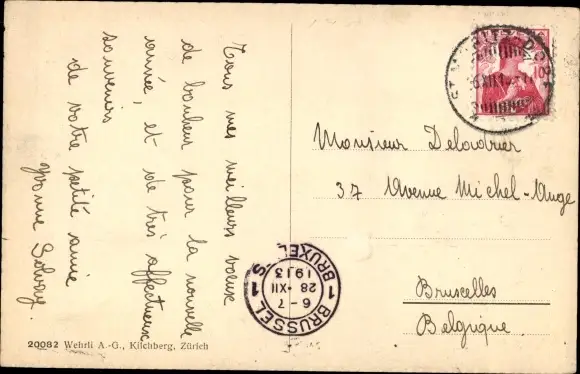 Tous mes meilleurs voeux
de bonheur pour la nouvelle
année, et de très affectueux
souvenirs
de votre petite amie
Yvonne Solvay.
20082 Wehrli A.-G., Kilchberg, Zürich
ST. MORITZ-DORF
10
Monsieur Delaudrier
37 Avenue Michel-Ange
Bruxelles
Belgique.
BRUSSEL 1
6-7
28 XII
1913
BRUXELLES 1